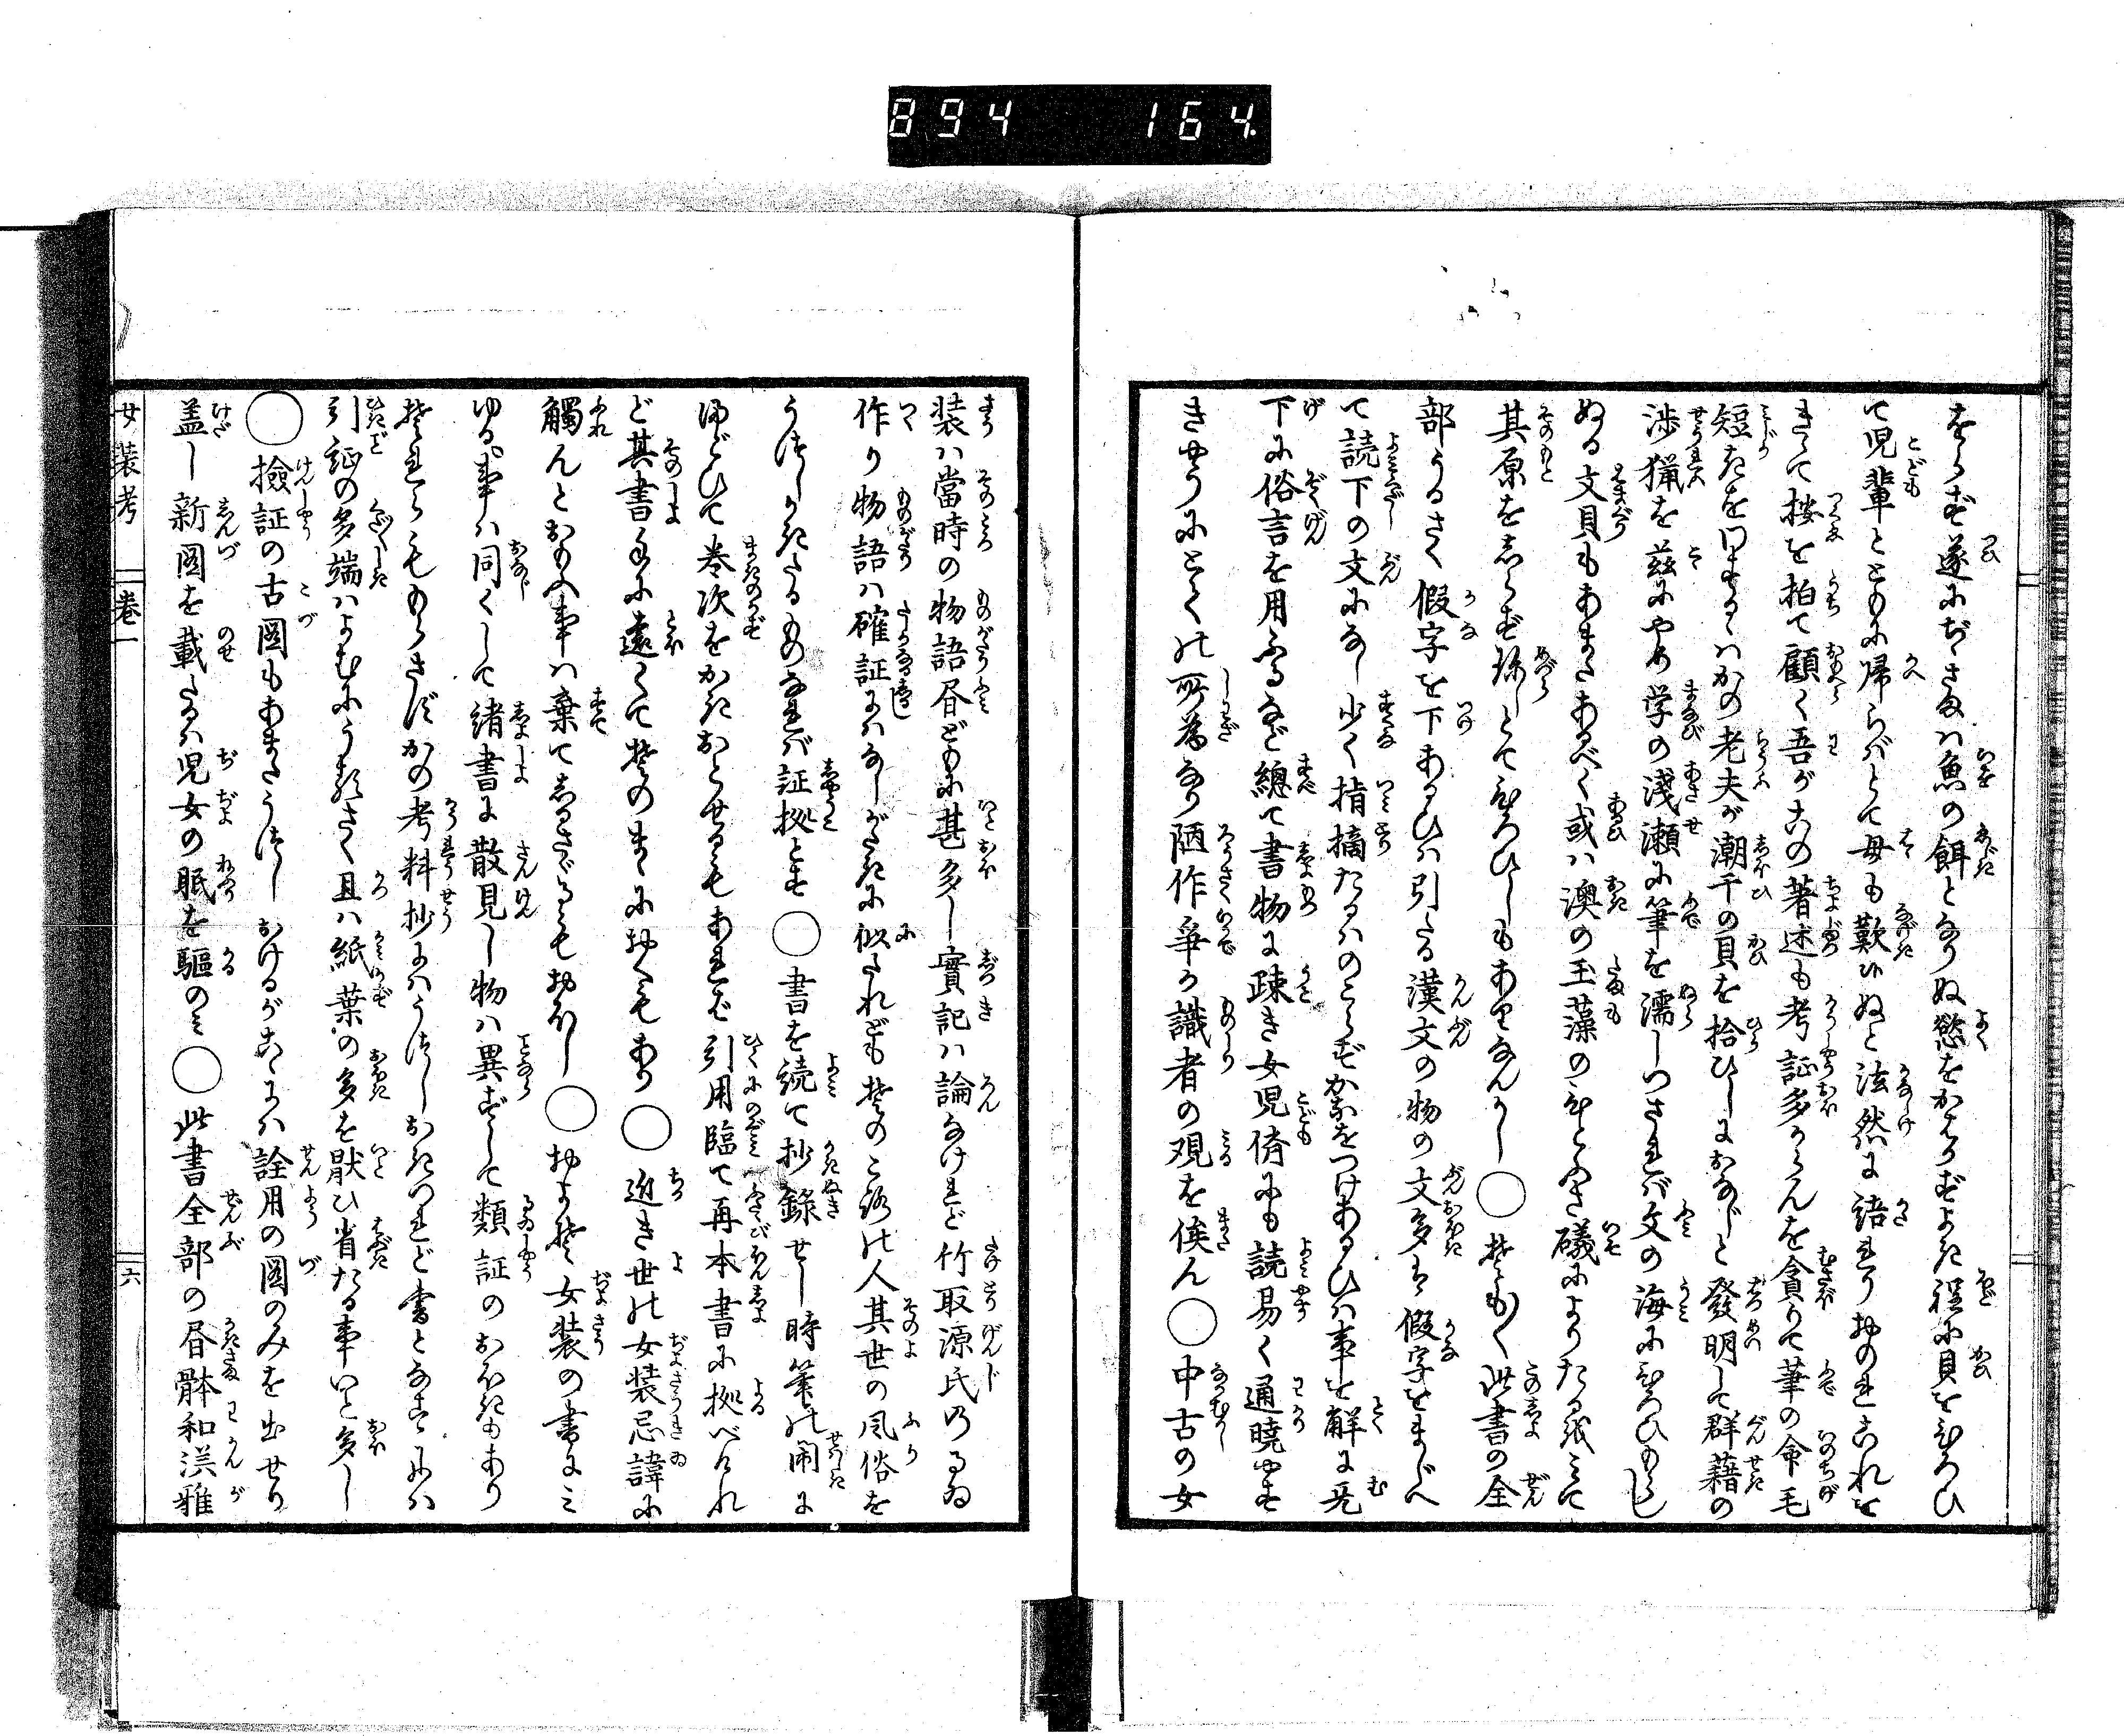 894 164.
をらず遂にぢさまハ魚の餌となりぬ慾をかはらずよき程に貝をひろひ
て児輩とともに帰らバとて母も歎きぬと泫然に語れりおのれこれを
きゝて按を拍て顧く吾がこの著述も考証多からんを貪りて筆の命毛
短きをわするゝハかの老夫が潮干の貝を拾ひしにおなじと發明して群藉の
渉猟を茲にやめ学の淺瀬に筆を濡しつされバ文の海にひろひもらし
ぬる文貝もあまたあるべく或ハ澳の玉藻のひとふさ礒によりたるを見て
其原をしらず珍しとてひろひしもありなんかし◯そも〳〵此書の全
部うるさく假字を下あるひハ引たる漢文の物の文多は假字をまじへ
て読下の文になし少く指摘たるハのこらずかなをつけあるひハ事を解に児
下に俗言を用ふるなど總て書物に疎き女児儕にも読易く通曉やす
きやうにとくの所為なり陋作爭か識者の覌を俟ん◯中古の女
装ハ當時の物語冊どもに甚多し實記ハ論なけれど竹取源氏のるゐ
作り物語ハ確証にハなしがたきに似たれどもそのころの人其世の風俗を
うつしかきたるものなれバ証拠とす◯書を続て抄錄せし時筆の閙に
まどひて巻次をかきおとせるもあれど引用臨て再本書に拠べけれ
ど其書手に遠くてそのまゝにおくもあり◯近き世の女装忌諱に
觸んとおもふ事ハ棄てしるさゞるもおほし◯およそ女装の書にミ
ゆる事ハ同くして緒書に散見し物ハ異ずして類証のおほきもあり
それらももらさずかの考料抄にハうつしおきつれど書となすにハ
引証の多端ハよむにうるさく且ハ紙葉の多を厭ひ省たる事いと多し
◯撿証の古圖もあまたうつしおけるがこゝにハ詮用の圖のみを出せり
盖し新圖を載たるハ児女の眠を驅のミ◯此書全部の冊躰和漢雅
女装考 巻一 六